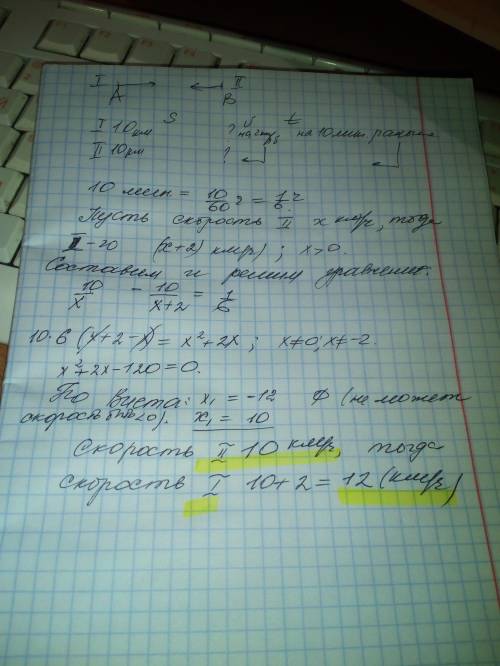 I II
A B
S v t
I 10 км ? на 2 км/ч б на 10 мин. раньше
II 10 км ?
10 мин = 10/60 ч = 1/6 ч
Пусть скорость II x км/ч, тогда
I-го (x+2) км/ч; x>0.
Составим и решим уравнение:
10/x - 10/x+2 = 1/6
10·6 (x+2-x) = x²+2x; x≠0; x≠-2.
x²+2x-120=0.
По Виета: x₁ = -12 ∅ (не может
скорость быть <0). x₁ = 10
Скорость II 10 км/ч, тогда
скорость I 10+2 = 12 (км/ч)